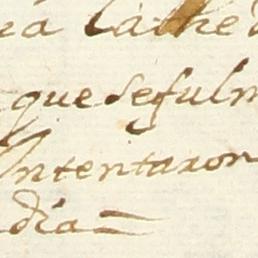 ra Cathed
que se fulm
Intentaron
dia =